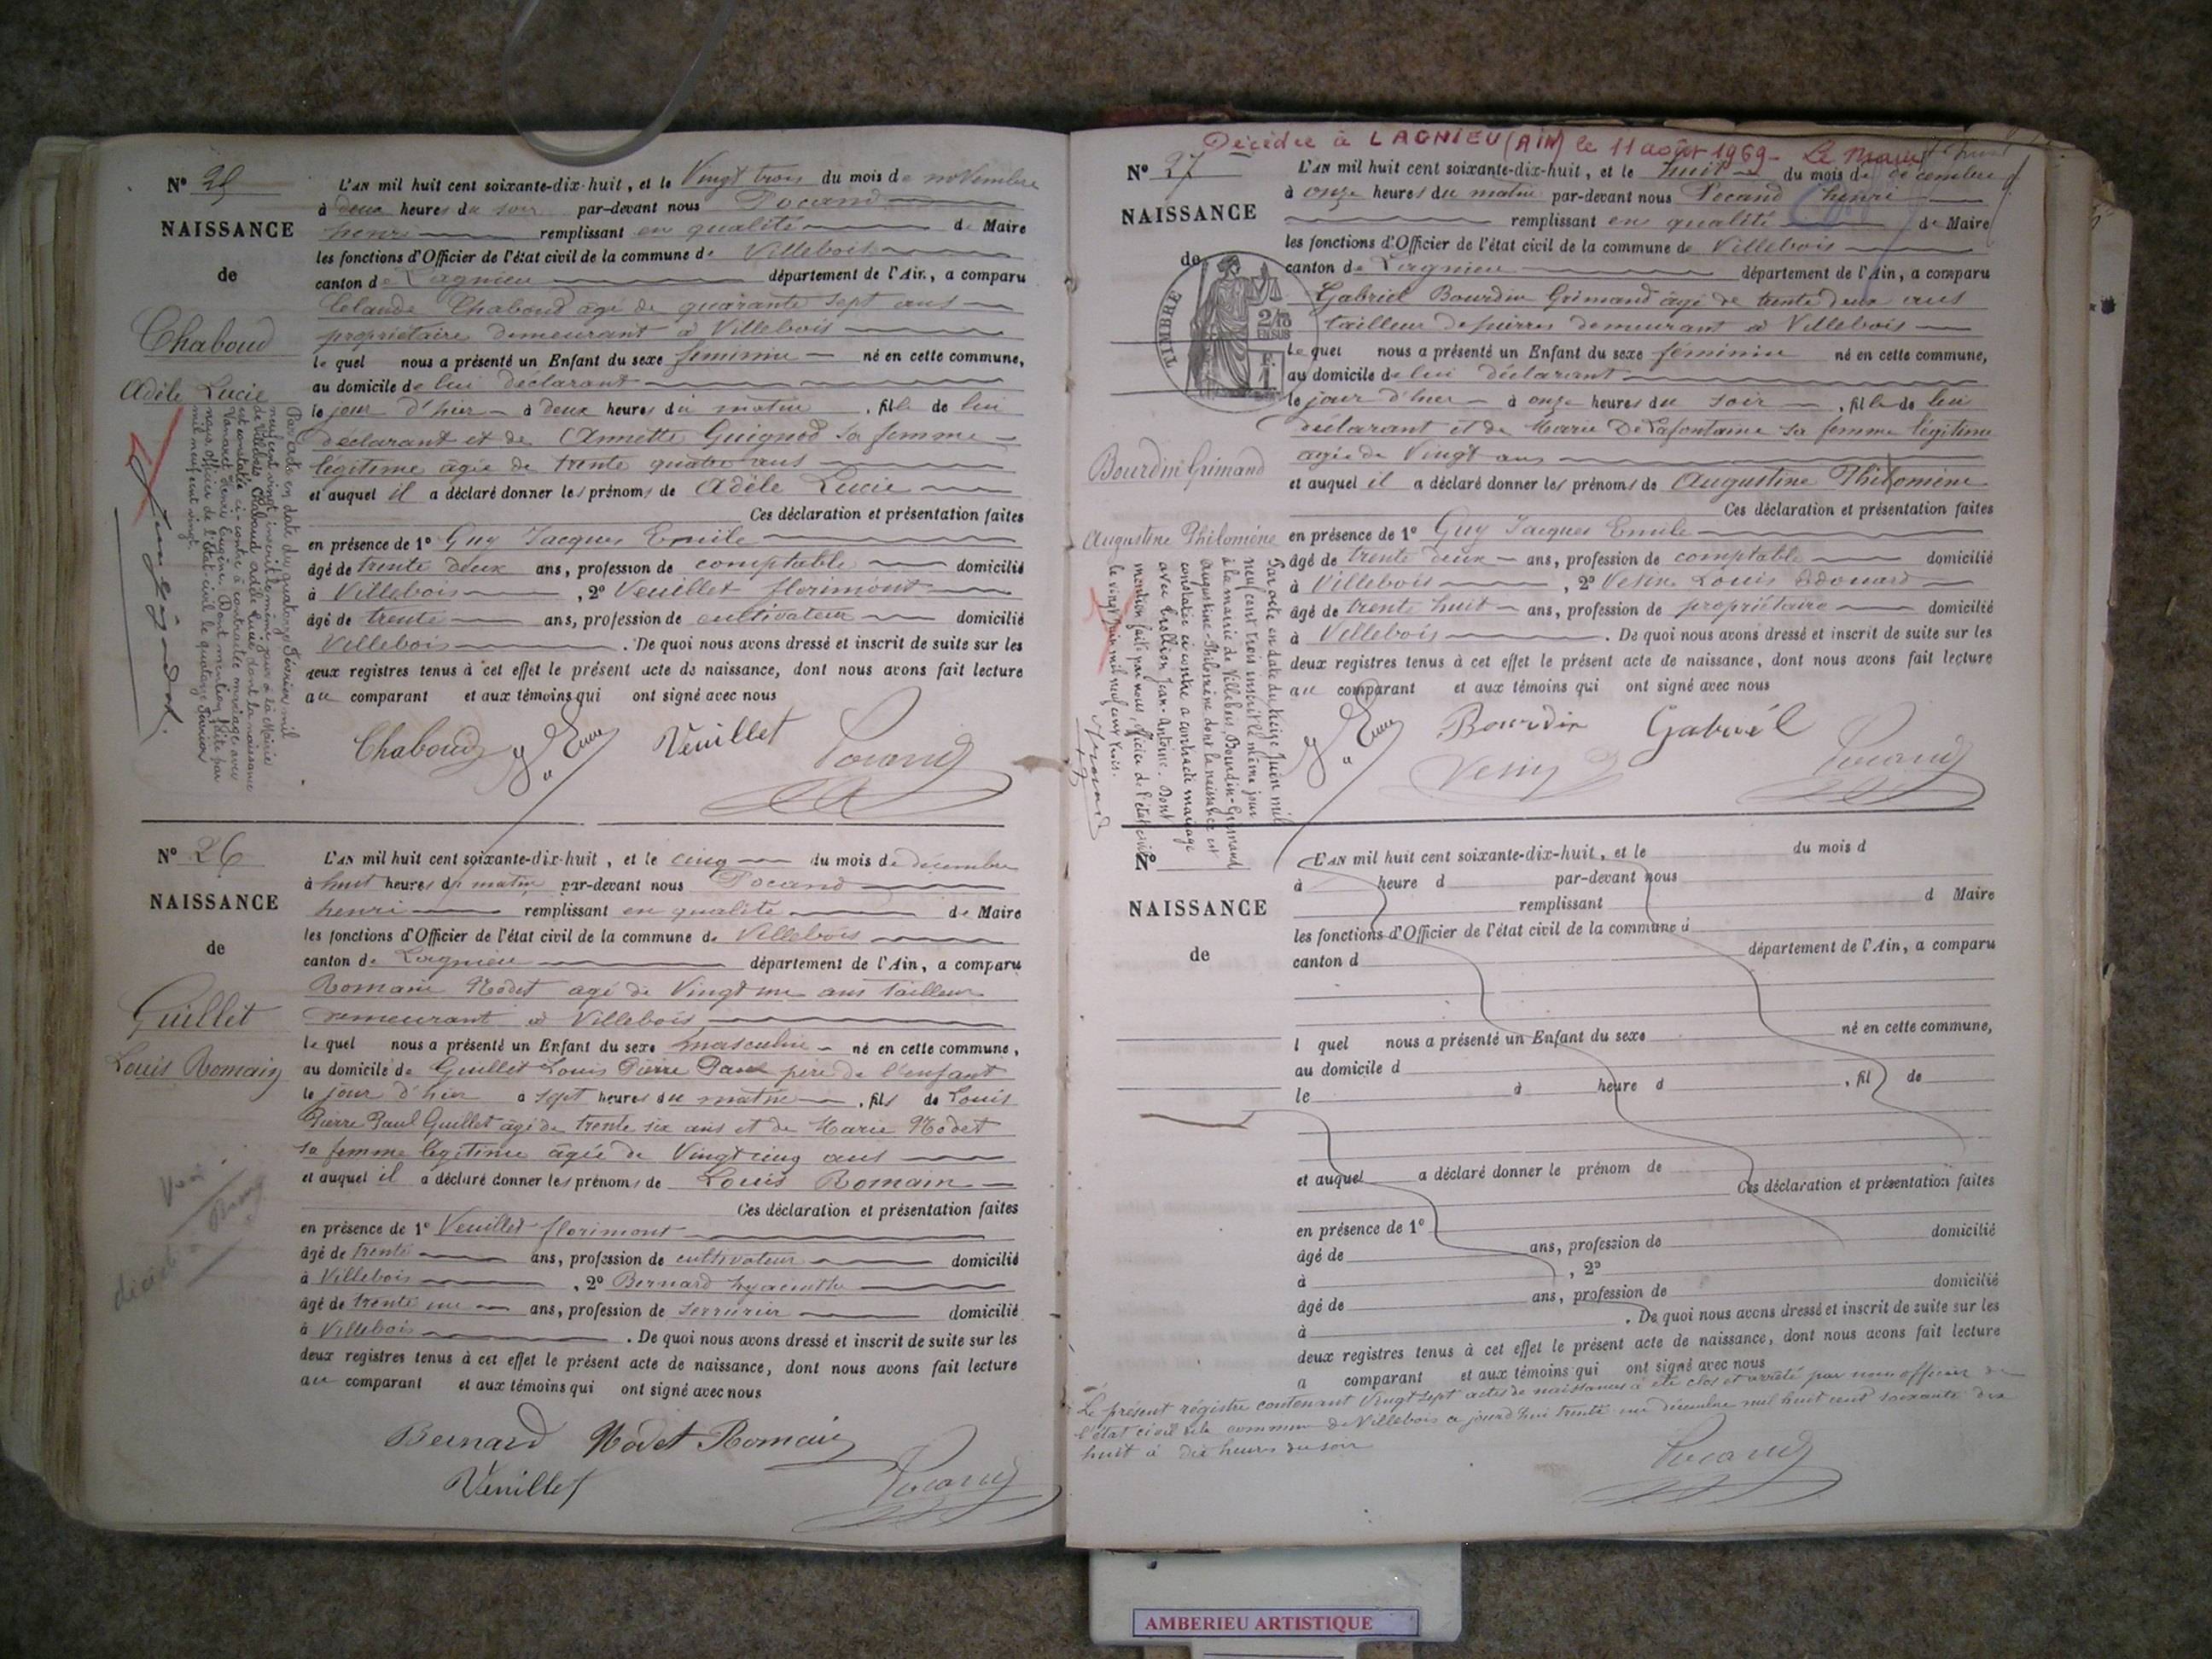 N° 25
NAISSANCE
de
Chaboud
Adèle Lucie
L'AN mil huit cent soixante-dix-huit, et le Vingt trois du mois de novembre
à deux heures du soir par-devant nous Pocand
henri remplissant en qualité de Maire
les fonctions d'Officier de l'état civil de la commune de Villebois
canton de Lagnieu département de l'Ain, a comparu
Claude Chaboud âgé de quarante sept ans
propriétaire demeurant à Villebois
le quel nous a présenté un Enfant du sexe féminin né en cette commune,
au domicile de lui déclarant
le jour d'hier à deux heures du matin, fille de lui
déclarant et de Annette Guignod sa femme
légitime âgée de trente quatre ans
et auquel il a déclaré donner les prénoms de Adèle Lucie
Ces déclaration et présentation faites
en présence de 1° Guy Jacques Emile
âgé de trente deux ans, profession de comptable domicilié
à Villebois, 2° Veuillet florimont
âgé de trente ans, profession de cultivateur domicilié
Villebois. De quoi nous avons dressé et inscrit de suite sur les
deux registres tenus à cet effet le présent acte de naissance, dont nous avons fait lecture
au comparant et aux témoins qui ont signé avec nous
Chaboud Veuillet Pocand
Par acte en date du quatorze Février mil
neuf cent vingt inscrit le même jour à la Mairie
de Villebois, Chaboud Adèle Lucie, dont la naissance
est constatée ci-contre à contracté mariage avec
Vanaret Henri Eugène. Dont mention faite par
nous, officier de l'état-civil le quatorze Février
mil neuf cent vingt.
N° 26
NAISSANCE
de
Guillet
Louis Romain
décédé à
L'AN mil huit cent soixante-dix-huit, et le cinq du mois de décembre
à huit heures du matin par-devant nous Pocand
henri remplissant en qualité de Maire
les fonctions d'Officier de l'état civil de la commune de Villebois
canton de Lagnieu département de l'Ain, a comparu
Romain Nodet âgé de Vingt un ans tailleur
demeurant à Villebois
le quel nous a présenté un Enfant du sexe masculin né en cette commune,
au domicile de Guillet Louis Pierre Paul père de l'enfant
le jour d'hier à sept heures du matin, fils de Louis
Pierre Paul Guillet âgé de trente six ans et de Marie Nodet
sa femme légitime âgée de Vingt cinq ans
et auquel il a déclaré donner les prénoms de Louis Romain
Ces déclaration et présentation faites
en présence de 1° Veuillet florimont
âgé de trente ans, profession de cultivateur domicilié
à Villebois, 2° Bernard hyacinthe
âgé de trente un ans, profession de serrurier domicilié
à Villebois. De quoi nous avons dressé et inscrit de suite sur les
deux registres tenus à cet effet le présent acte de naissance, dont nous avons fait lecture
au comparant et aux témoins qui ont signé avec nous
Bernard Nodet Romain
Veuillet Pocand
Décédée à LAGNIEU (AIN) le 11 août 1969 - Le Maire
N° 27
NAISSANCE
de
TIMBRE
2/10
EN SUS
F.
1
Bourdin Grimand
Augustine Philomène
L'AN mil huit cent soixante-dix-huit, et le huit du mois de décembre
à onze heures du matin par-devant nous Pocand henri
remplissant en qualité de Maire
les fonctions d'Officier de l'état civil de la commune de Villebois
canton de Lagnieu département de l'Ain, a comparu
Gabriel Bourdin Grimand âgé de trente deux ans
tailleur de pierres demeurant à Villebois
le quel nous a présenté un Enfant du sexe féminin né en cette commune,
au domicile de lui déclarant
le jour d'hier à onze heures du soir, fille de lui
déclarant et de Marie Delafontaine sa femme légitime
âgée de Vingt ans
et auquel il a déclaré donner les prénoms de Augustine Philomène
Ces déclaration et présentation faites
en présence de 1° Guy Jacques Emile
âgé de trente deux ans, profession de comptable domicilié
à Villebois, 2° Vesin Louis Edouard
âgé de trente huit ans, profession de propriétaire domicilié
à Villebois. De quoi nous avons dressé et inscrit de suite sur les
deux registres tenus à cet effet le présent acte de naissance, dont nous avons fait lecture
au comparant et aux témoins qui ont signé avec nous
Bourdin Gabriél
Vesin Pocand
Par acte en date du treize Juin mil
neuf cent trois inscrit le même jour
à la mairie de Villebois, Bourdin-Grimand
Augustine-Philomène dont la naissance est
constatée ci-contre a contracté mariage
avec Trollion Jean-Antoine. Dont
mention faite par nous, officier de l'état civil
le vingt Juin mil neuf cent trois.
N°
NAISSANCE
de
L'AN mil huit cent soixante-dix-huit, et le du mois d
à heure d par-devant nous
remplissant d Maire
les fonctions d'Officier de l'état civil de la commune d
canton d département de l'Ain, a comparu
l quel nous a présenté un Enfant du sexe né en cette commune,
au domicile d
le à heure d, fil de
et auquel a déclaré donner le prénom de
Ces déclaration et présentation faites
en présence de 1°
âgé de ans, profession de domicilié
à, 2°
âgé de ans, profession de domicilié
à. De quoi nous avons dressé et inscrit de suite sur les
deux registres tenus à cet effet le présent acte de naissance, dont nous avons fait lecture
a comparant et aux témoins qui ont signé avec nous
Le présent régistre contenant Vingt sept actes de naissances a été clos et arrêté par nous officier de
l'état civil de la commune de Villebois ce jourd'hui trente un décembre mil huit cent soixante dix
huit à dix heures du soir
Pocand
AMBERIEU ARTISTIQUE